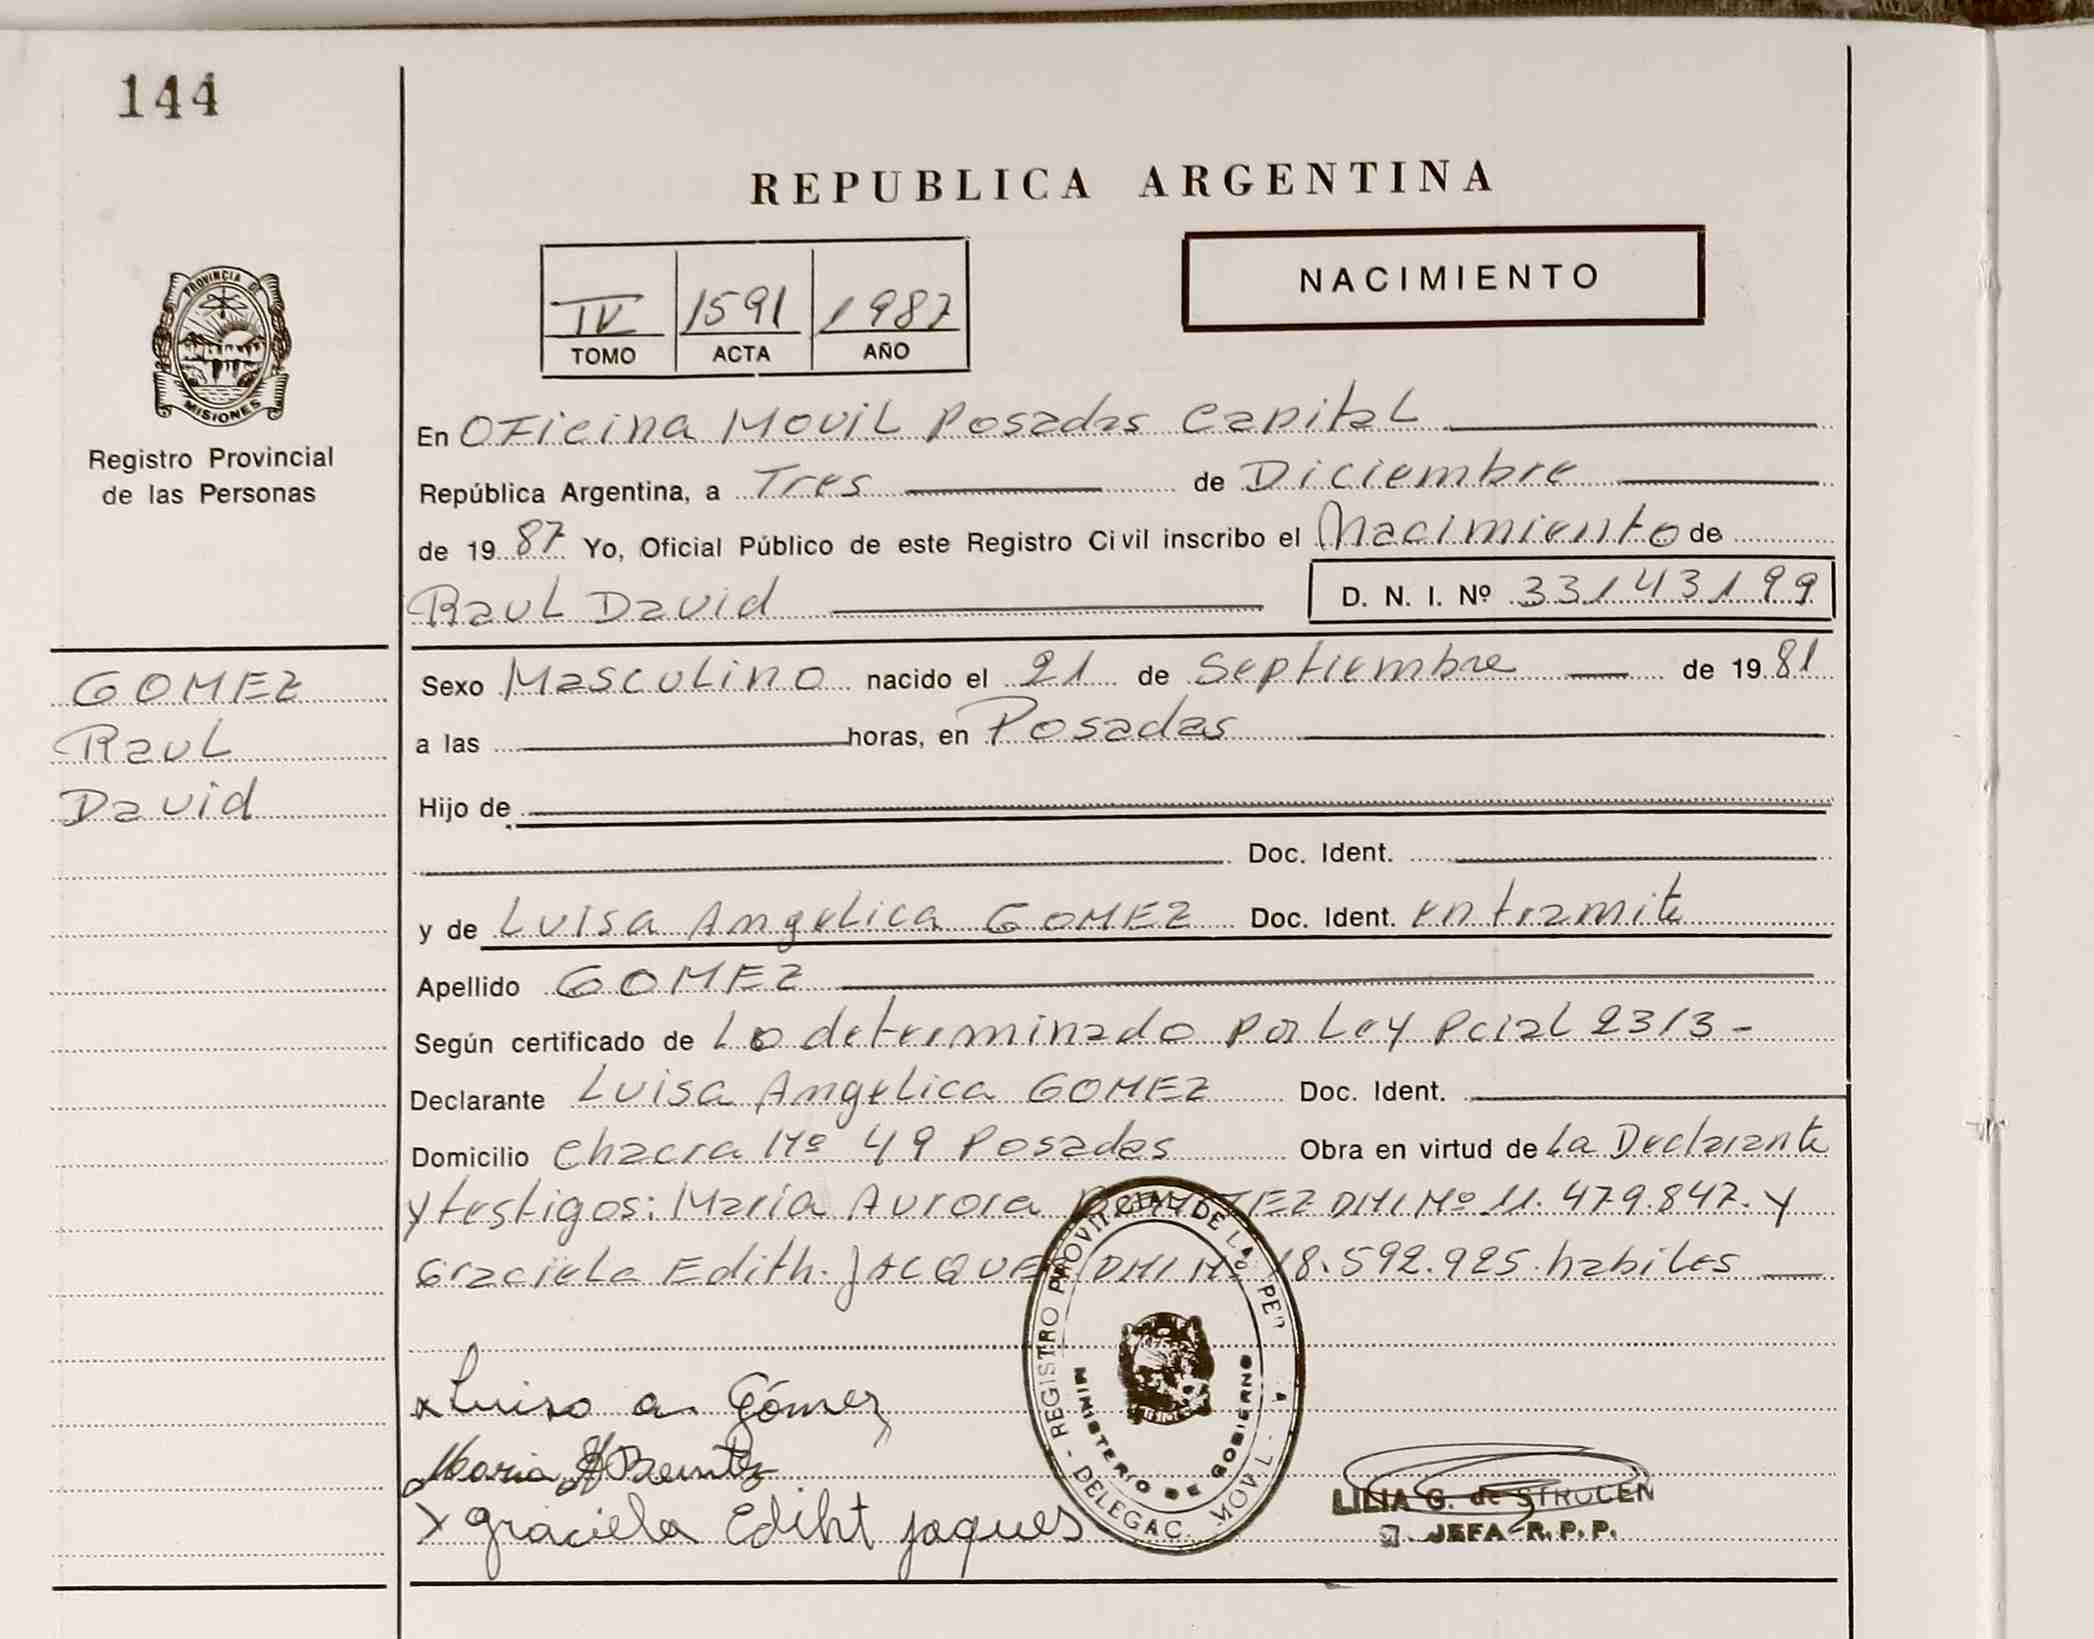 144
REPUBLICA ARGENTINA
IV 1591 1987
TOMO ACTA AÑO
NACIMIENTO
PROVINCIA DE
MISIONES
Registro Provincial
de las Personas
En Oficina Movil Posadas Capital
República Argentina, a Tres de Diciembre
de 1987 Yo, Oficial Público de este Registro Civil inscribo el Nacimiento de
Raul David D. N. I. Nº 33143199
GOMEZ
Raul
David
Sexo Masculino nacido el 21 de Septiembre de 1981
a las horas, en Posadas
Hijo de
Doc. Ident.
y de Luisa Angelica GOMEZ Doc. Ident. en tramite
Apellido GOMEZ
Según certificado de Lo determinado por Ley Pcial 2313-
Declarante Luisa Angelica GOMEZ Doc. Ident.
Domicilio Chacra Nº 49 Posadas Obra en virtud de La Declarante
y testigos: Maria Aurora DNI Nº 11.479.847. y
Graciela Edith JACQUE DNI Nº 18.592.925. habiles
x Luisa a. Gómez
Maria A Benitez
x graciela Ediht jaques
REGISTRO PROVINCIAL DE LAS PER
MINISTERIO DE GOBIERNO
DELEGAC. MOVIL
LILIA G. de STROCEN
JEFA R.P.P.